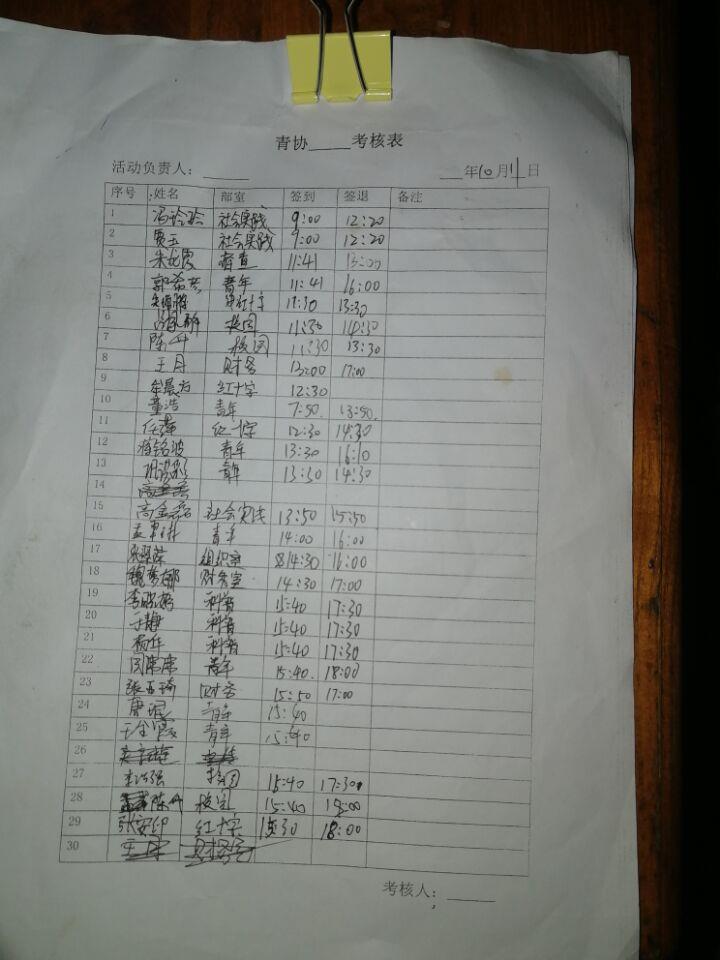 青协____考核表
活动负责人：____ __年10月11日
序号 姓名 部室 签到 签退 备注
1 冯玲玲 社会实践 9:00 12:20
2 贾玉 社会实践 9:00 12:20
3 督查 11:41 13:00
4 青年 11:41 16:00
5 红十字 11:30 13:30
6 校园 11:30 14:30
7 陈丹 校园 11:30 13:30
8 王月 财务 13:00 17:00
9 红十字 12:30
10 董浩 青年 7:50 13:50
11 任萍 红十字 12:30 14:30
12 蒋铭波 青年 13:30 16:10
13 青年 13:30 14:30
14
15 高金磊 社会实践 13:50 15:50
16 青年 14:00 16:00
17 组织室 14:30 16:00
18 魏梦娜 财务室 14:30 17:00
19 科普 15:40 17:30
20 于静 科普 15:40 17:30
21 杨华 科普 15:40 17:30
22 周席席 青年 15:40 18:00
23 张玉琦 财务 15:50 17:00
24 唐琨 青年 15:40
25 王金霞 青年 15:40
26
27 校园 15:40 17:30
28 陈丹 校园 15:40 18:00
29 张安印 红十字 15:30 18:00
30 财务室
考核人：____